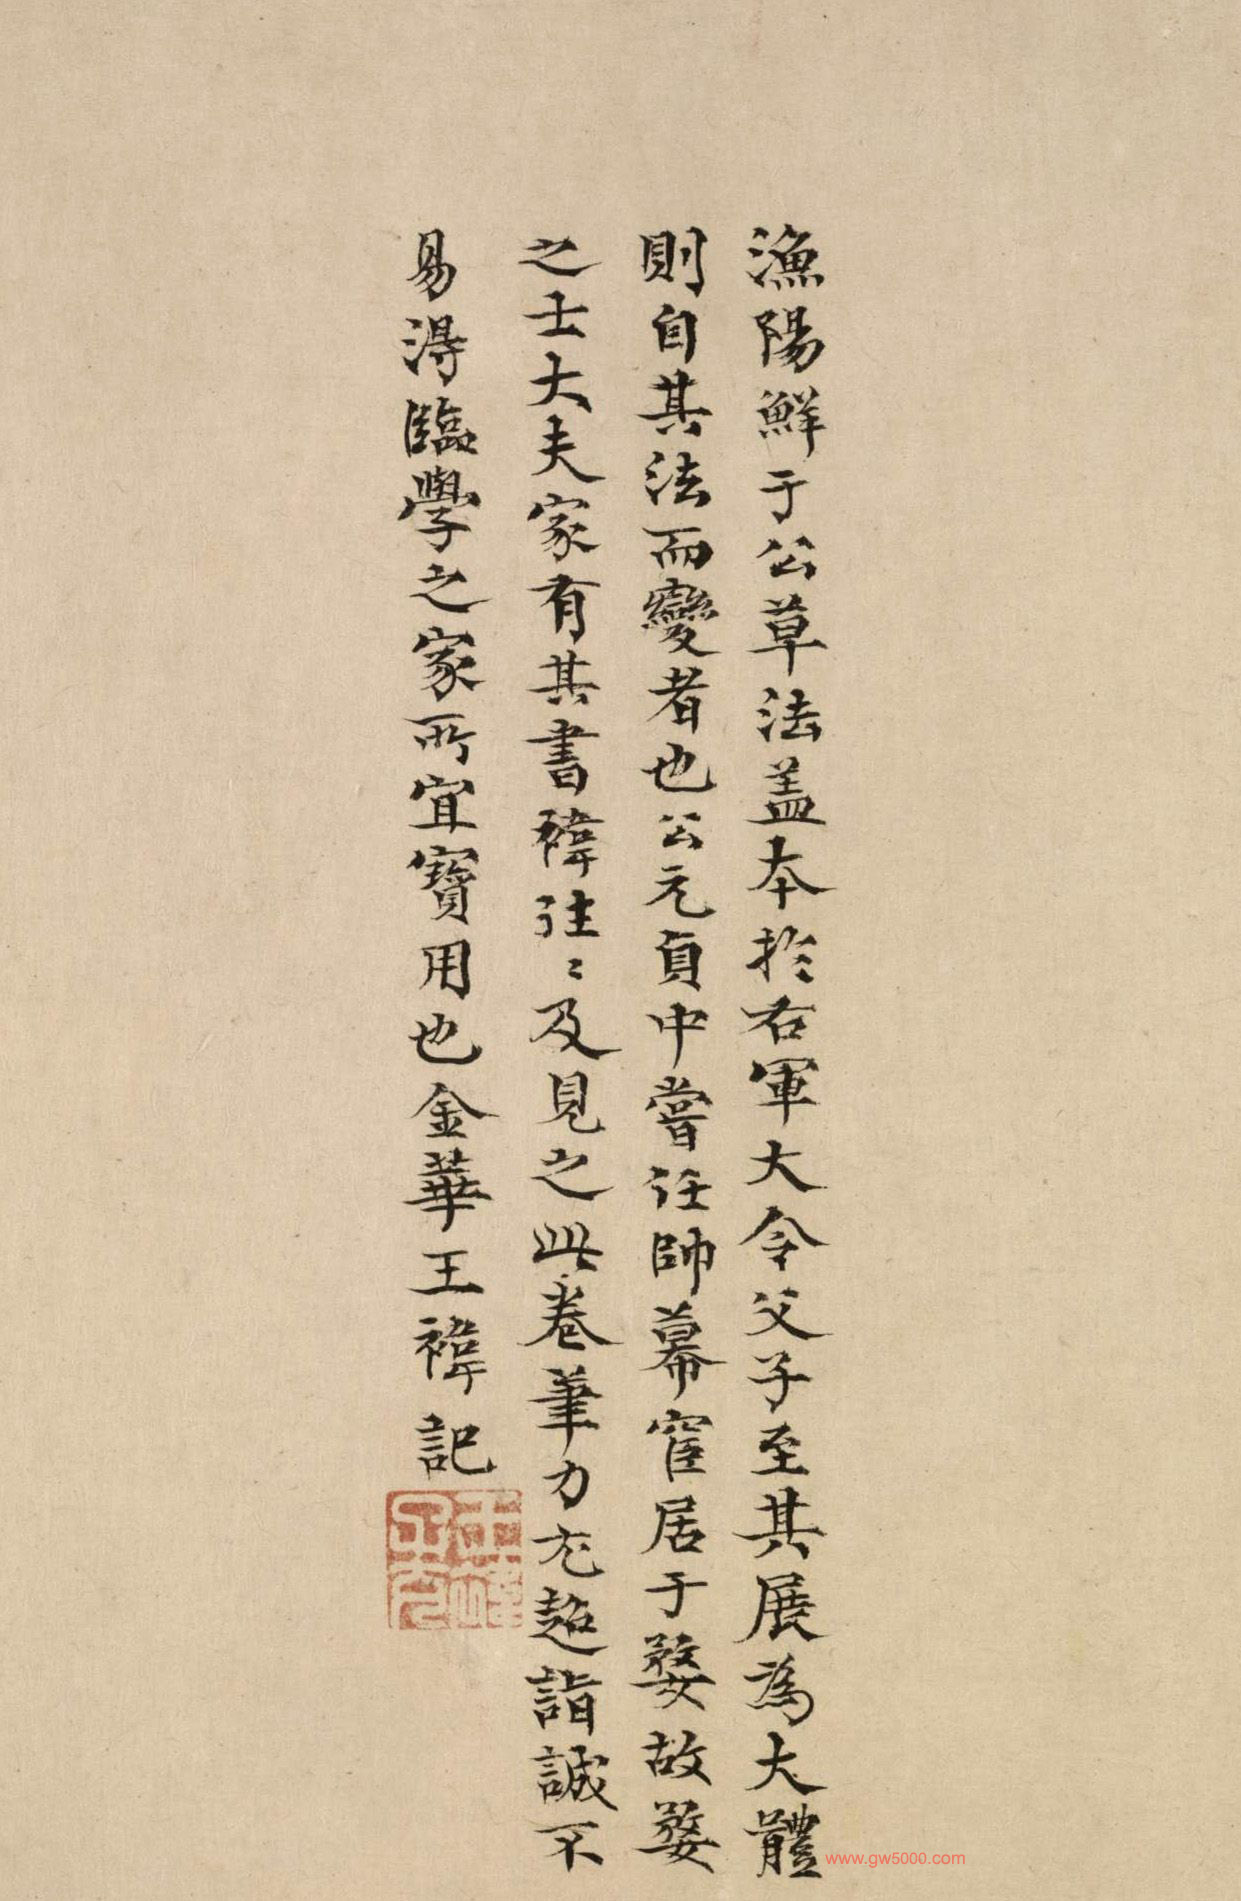 漁陽鮮于公草法盖本於右軍大令父子至其展為大體
則自其法而變者也公元貞中嘗任帥幕官居于婺故婺
之士大夫家有其書禕往〻及見之此卷筆力尤超詣誠不
易得臨學之家所宜寶用也金華王禕記
www.gw5000.com